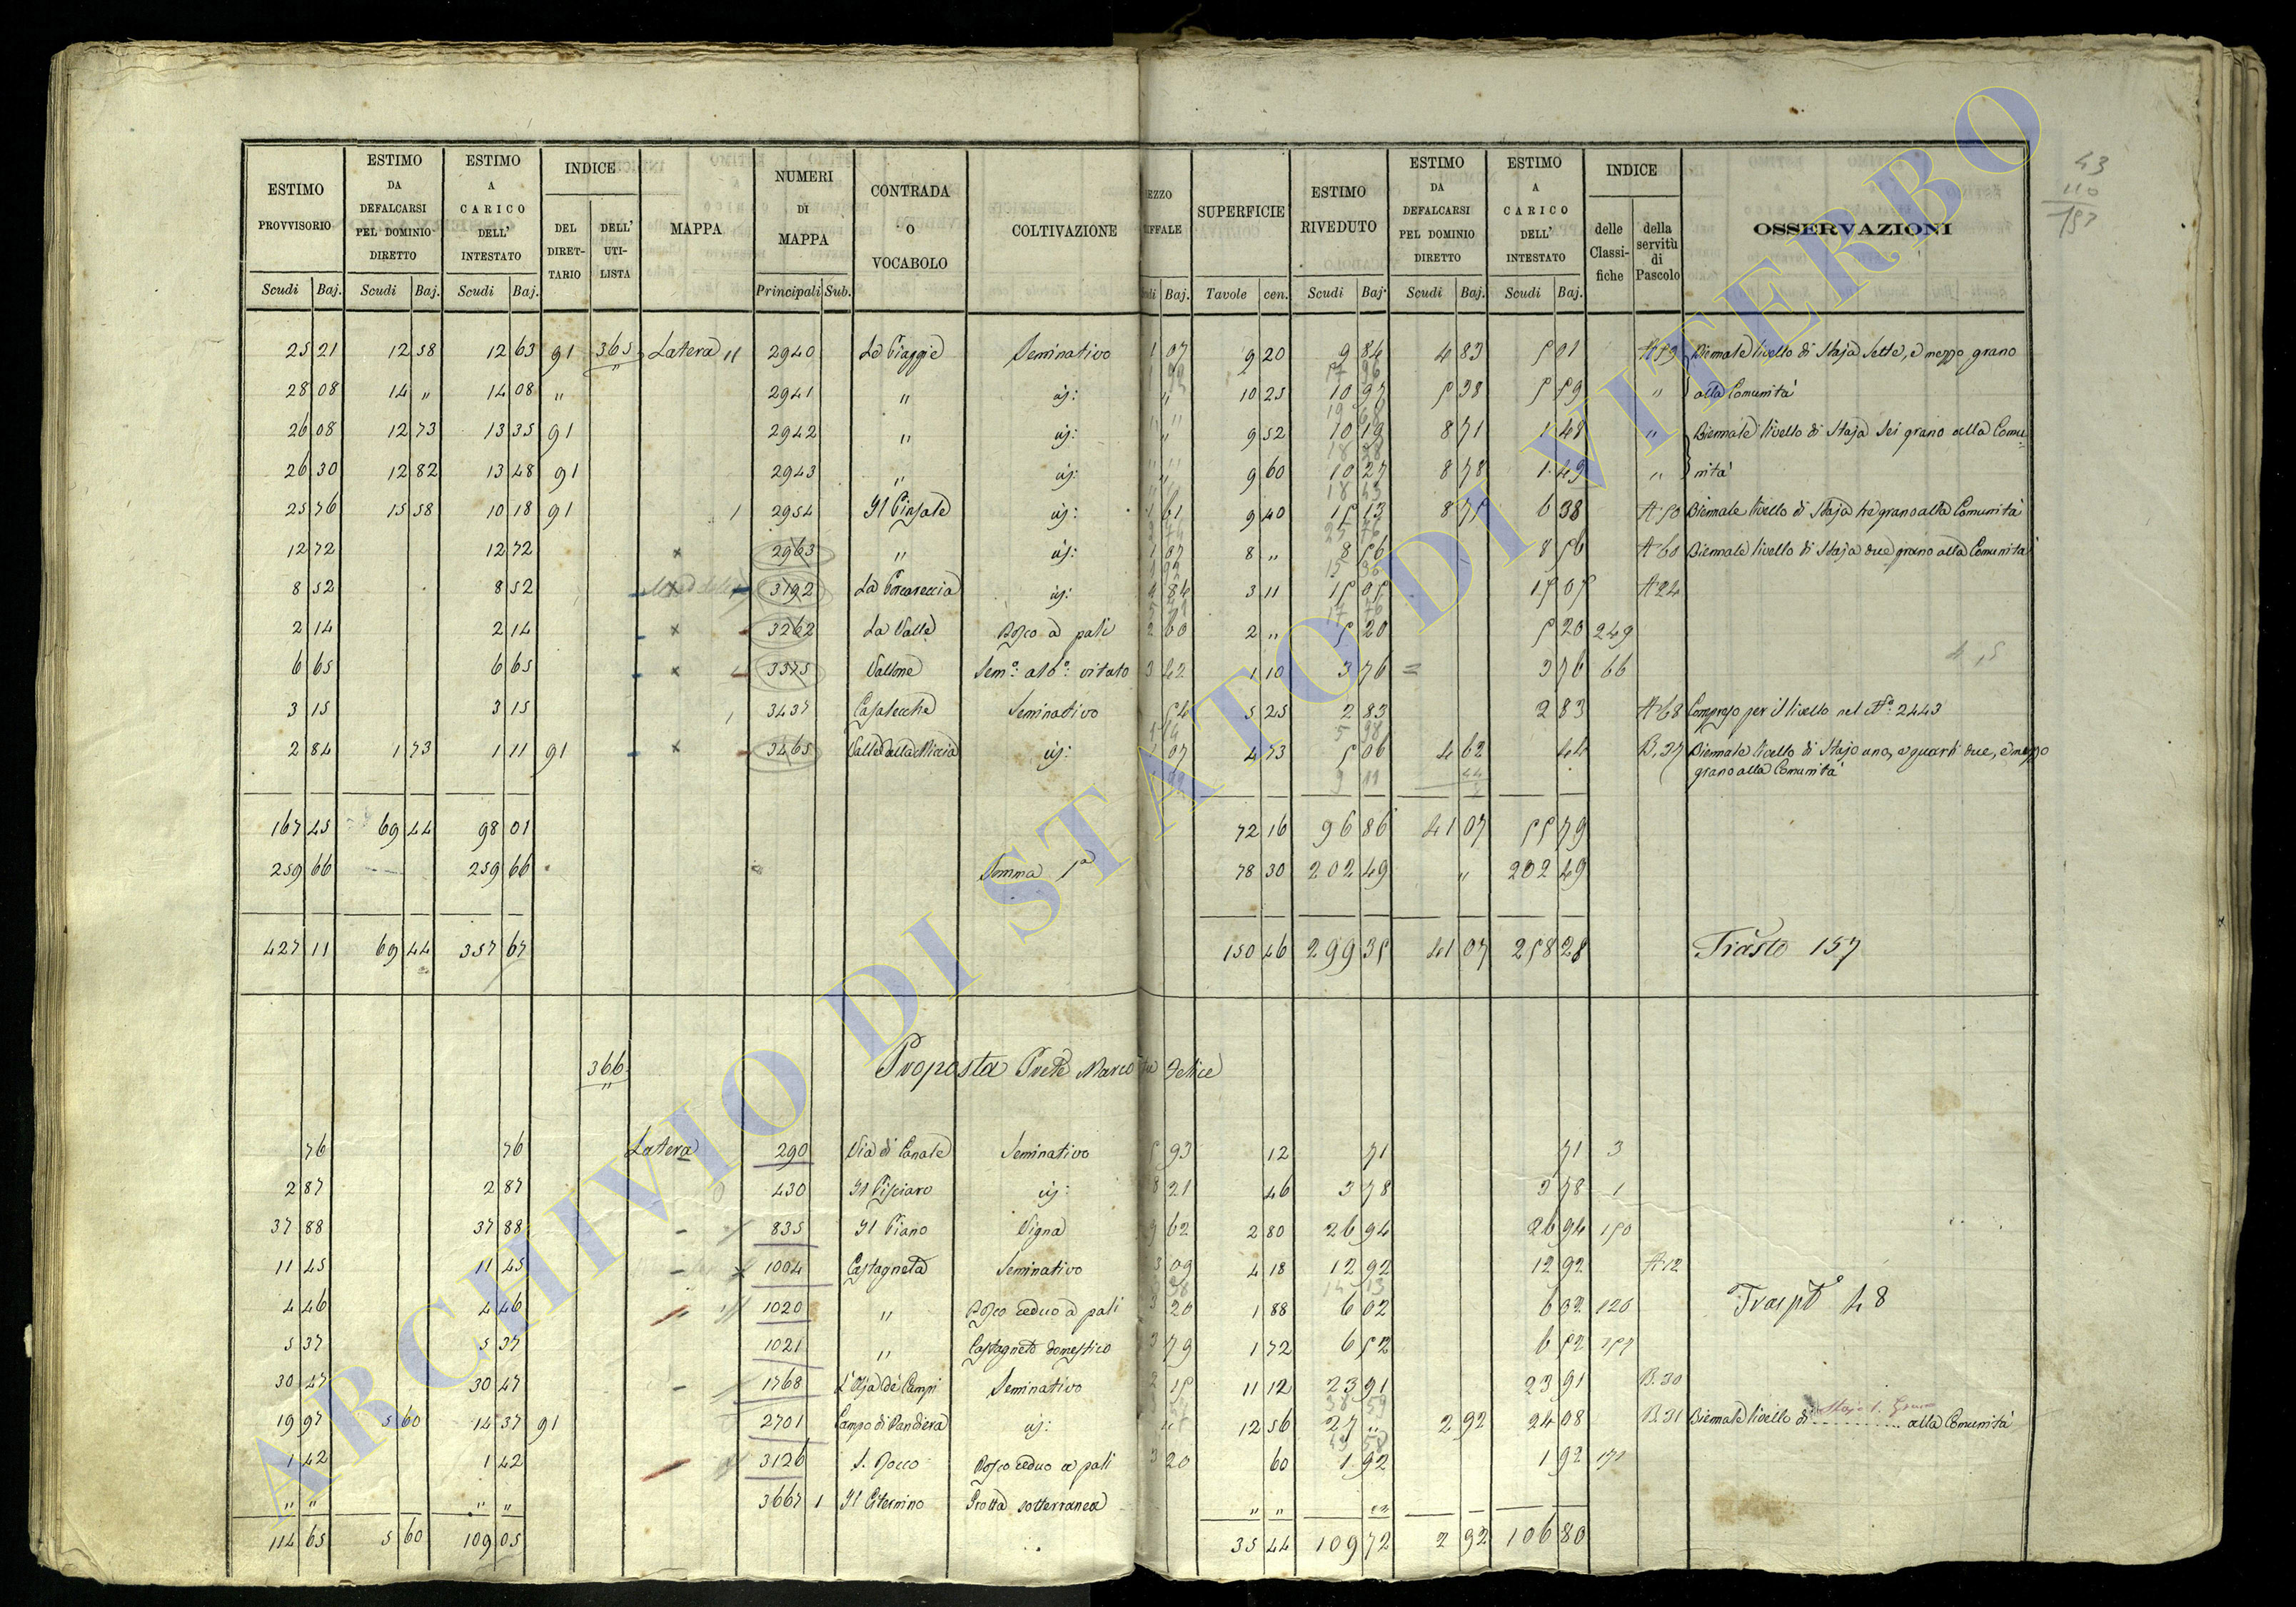 ESTIMO PROVVISORIO | ESTIMO DA DEFALCARSI PEL DOMINIO DIRETTO | ESTIMO A CARICO DELL' INTESTATO | INDICE | MAPPA | NUMERI DI MAPPA | CONTRADA O VOCABOLO | COLTIVAZIONE | SUPERFICIE | ESTIMO RIVEDUTO | ESTIMO DA DEFALCARSI PEL DOMINIO DIRETTO | ESTIMO A CARICO DELL' INTESTATO | INDICE | OSSERVAZIONI
DEL DIRETTARIO | DELL' UTILISTA | delle Classifiche | della servitù di Pascolo
Scudi | Baj. | Scudi | Baj. | Scudi | Baj. | Principali | Sub. | Baj. | Tavole | cen. | Scudi | Baj. | Scudi | Baj. | Scudi | Baj.
43
110
25 21 | 12 58 | 12 63 | 91 | 365 | Latera | 2940 | Le Piaggie | Seminativo | 1 07 | 9 20 | 9 84 | 4 83 | 5 01 | A 59 | Biennale livello di Staja Sette, e mezzo grano
28 08 | 14 " | 14 08 | " | 2941 | " | id: | " | 10 25 | 10 97 | 5 38 | 5 59 | " | alla Comunità
26 08 | 12 73 | 13 35 | 91 | 2942 | " | id: | " | 9 52 | 10 19 | 8 71 | 1 48 | " | Biennale livello di Staja Sei grano alla Comu-
26 30 | 12 82 | 13 48 | 91 | 2943 | " | id: | " | 9 60 | 10 27 | 8 78 | 1 49 | " | nità
25 76 | 15 58 | 10 18 | 91 | 2954 | id: | 1 61 | 9 40 | 15 13 | 8 75 | 6 38 | A 50 | Biennale livello di Staja tre grano alla Comunità
12 72 | 12 72 | 2963 | " | id: | 1 07 | 8 " | 8 56 | 8 56 | A 60 | Biennale livello di Staja due grano alla Comunità
8 52 | 8 52 | 3192 | La Porcareccia | id: | 4 84 | 3 11 | 15 05 | 15 05 | A 24
2 14 | 2 14 | 3262 | La Valle | Bosco a pali | 2 60 | 2 " | 5 20 | 5 20 | 249
6 65 | 6 65 | 3375 | Vallone | Sem.º alb.º vitato | 3 42 | 1 10 | 3 76 | 3 76 | 66
3 15 | 3 15 | 3437 | Casalecchie | Seminativo | 54 | 5 25 | 2 83 | 2 83 | A 68 | Compreso per il livello nel Nº 2443
2 84 | 1 73 | 1 11 | 91 | 3465 | id: | 1 07 | 4 73 | 5 06 | 4 62 | 44 | B. 37 | Biennale livello di Staja una, e quarti due, e mezzo
grano alla Comunità
167 45 | 69 44 | 98 01 | 72 16 | 96 86 | 41 07 | 55 79
259 66 | 259 66 | Somma | 78 30 | 202 49 | " | 202 49
427 11 | 69 44 | 357 67 | 150 46 | 299 35 | 41 07 | 258 28 | 157
366 | Proposta Prete Marco Felice
76 | 76 | Latera | 290 | Via di Canale | Seminativo | 5 93 | 12 | 71 | 71 | 3
2 87 | 2 87 | 430 | Il Pisciaro | id: | 8 21 | 46 | 3 78 | 3 78 | 1
37 88 | 37 88 | 835 | Il Piano | Vigna | 9 62 | 2 80 | 26 94 | 26 94 | 150
11 45 | 11 45 | 1004 | Castagneta | Seminativo | 3 09 | 4 18 | 12 92 | 12 92 | A 12
4 46 | 4 46 | 1020 | " | Bosco ceduo a pali | 3 20 | 1 88 | 6 02 | 6 02 | 126 | 48
5 37 | 5 37 | 1021 | " | Castagneto domestico | 3 79 | 1 72 | 6 52 | 6 52 | 157
30 47 | 30 47 | 1768 | Seminativo | 2 15 | 11 12 | 23 91 | 23 91 | B. 30
19 97 | 5 60 | 14 37 | 91 | 2701 | Campo di Bandiera | id: | 12 56 | 27 " | 2 92 | 24 08 | B. 31 | Biennale livello di Staja 1. Grano alla Comunità
1 42 | 1 42 | 3126 | S. Rocco | Bosco ceduo a pali | 3 20 | 60 | 1 92 | 1 92
" " | " " | 3667 | 1 | Il Cisternino | Grotta sotterranea | " " | " "
114 65 | 5 60 | 109 05 | 35 44 | 109 72 | 2 92 | 106 80
ARCHIVIO DI STATO DI VITERBO